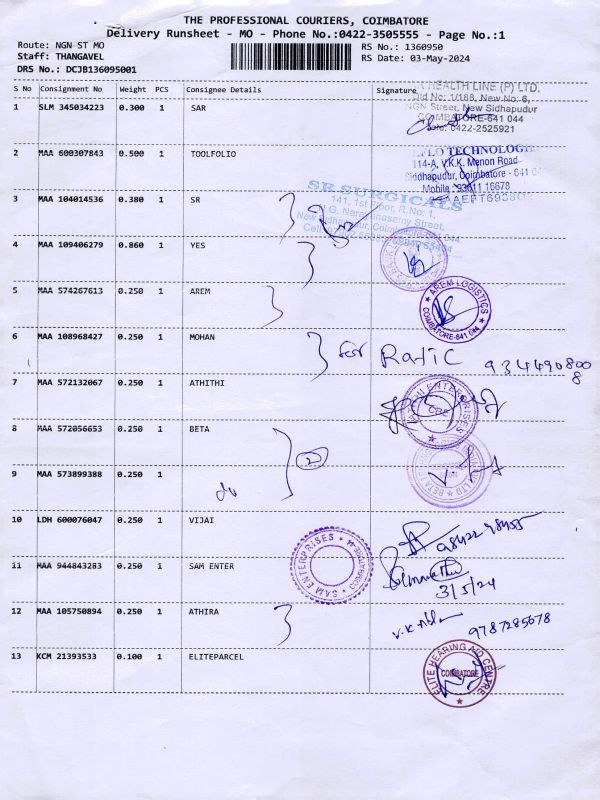 THE PROFESSIONAL COURIERS, COIMBATORE
Delivery Runsheet - MO - Phone No.:0422-3505555 - Page No.:1
Route: NGN ST MO
RS No.: 1360950
Staff: THANGAVEL
RS Date: 03-May-2024
DRS No.: DCJB136095001
S No Consignment No Weight PCS Consignee Details Signature
HEALTH LINE (P) LTD,
Old No: 1/168, New No: 6,
NGN Street, New Sidhapudur
COIMBATORE-641 044
0422-2525921
1 SLM 345034223 0.300 1 SAR
2 MAA 600307843 0.500 1 TOOLFOLIO
TECHNOLOGIE
114-A, V.K.K. Menon Road
Siddhapudur, Coimbatore - 641 04
Mobile : 93611 16678
3 MAA 104014536 0.380 1 SR
SR SURGICALS
141, 1st Floor, R.No: 1,
N.G. Narayanasamy Street,
New Sidhapudur, Coimbatore - 641 044
4 MAA 109406279 0.860 1 YES
5 MAA 574267613 0.250 1 AREM
AREM LOGISTICS
COIMBATORE-641 044
6 MAA 108968427 0.250 1 MOHAN
for 934490800
8
7 MAA 572132067 0.250 1 ATHITHI
ENTERPRISES
CBE
8 MAA 572056653 0.250 1 BETA
2
9 MAA 573899388 0.250 1
do
10 LDH 600076047 0.250 1 VIJAI
98422 98455
11 MAA 944843283 0.250 1 SAM ENTER
SAM ENTERPRISES
COIMBATORE-44
3/5/24
12 MAA 105750894 0.250 1 ATHIRA
9787285678
13 KCM 21393533 0.100 1 ELITEPARCEL
ELITE HEARING AID CENTRE
COIMBATORE